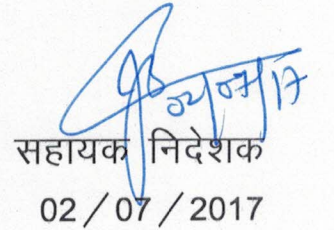 02/07/17
सहायक निदेशक
02 / 07 / 2017